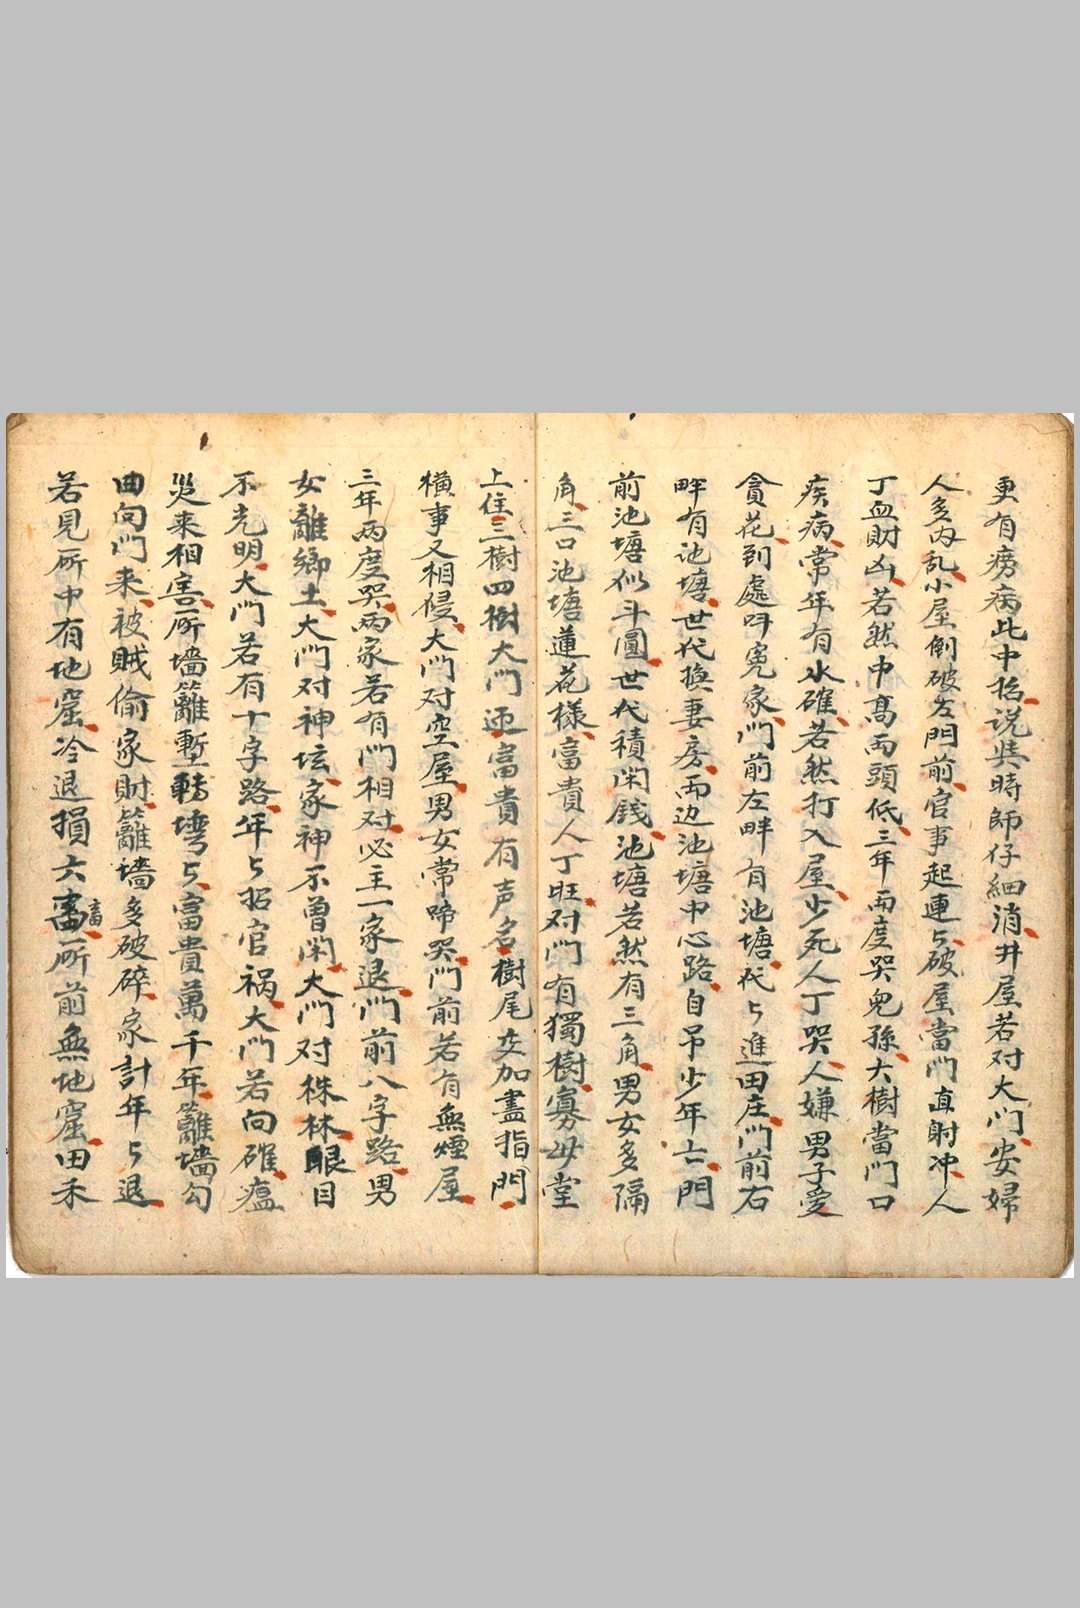 更有痨病此中招说與時師仔細消井屋若对大门安婦
人多内乱小屋倒破左门前官事起連与破屋當门直射冲人
丁血財凶若然中高两頭低三年两度哭兒孫大樹當门口
疾病常年有水碓若然打入屋少死人丁哭人嫌男子愛
貪花到處叫冤家门前左畔有池塘代与進田庄门前右
畔有池塘世代換妻房两边池塘中心路自吊少年亡门
前池塘似斗圓世代積闲錢池塘若然有三角男女多隔
角三口池塘蓮花樣富貴人丁旺对门有獨樹寡母堂
上住三樹四樹大门迊富貴有声名樹尾交加盡指门
橫事又相侵大门对空屋男女常啼哭门前若有無煙屋
三年两度哭两家若有门相对必主一家退门前八字路男
女離鄉土大门对神坛家神不曾闲大门对株林眼目
不光明大门若有十字路年与招官祸大门若向碓瘟
災来相害所墻籬塹轉埥与富貴萬千年籬墻勾
曲向门来被贼偷家財籬墻多破碎家計年与退
若見所中有地窟冷退損六畜所前無地窟田禾